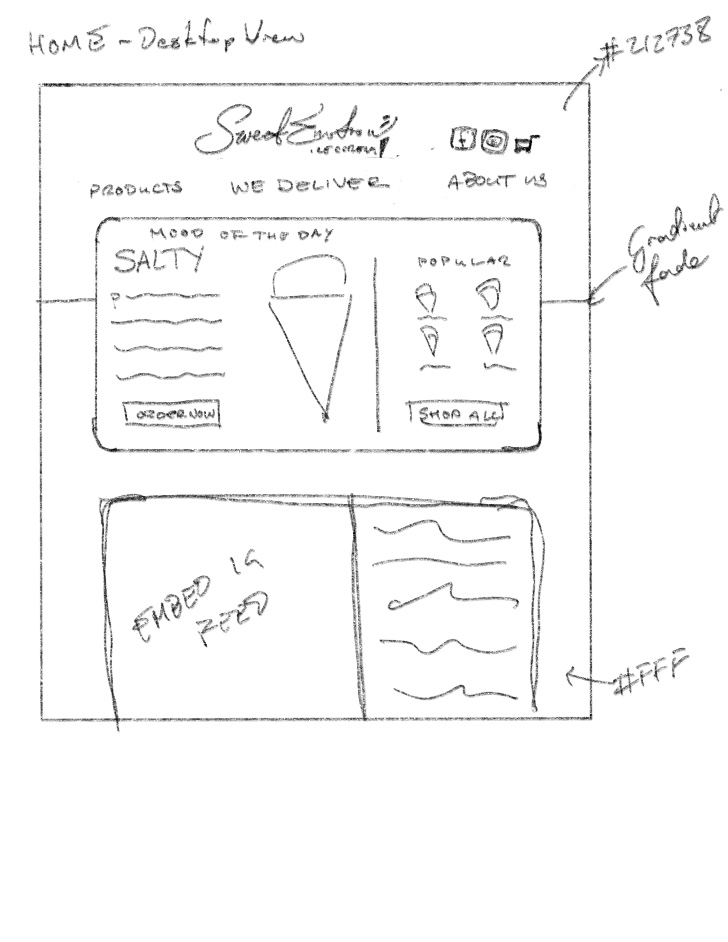 HOME - Desktop View
#212738
Sweet Emotions
ICE CREAM
f
PRODUCTS WE DELIVER ABOUT US
Gradient
fade
MOOD OF THE DAY
SALTY
POPULAR
P
ORDER NOW
SHOP ALL
EMBED IG
FEED
#FFF